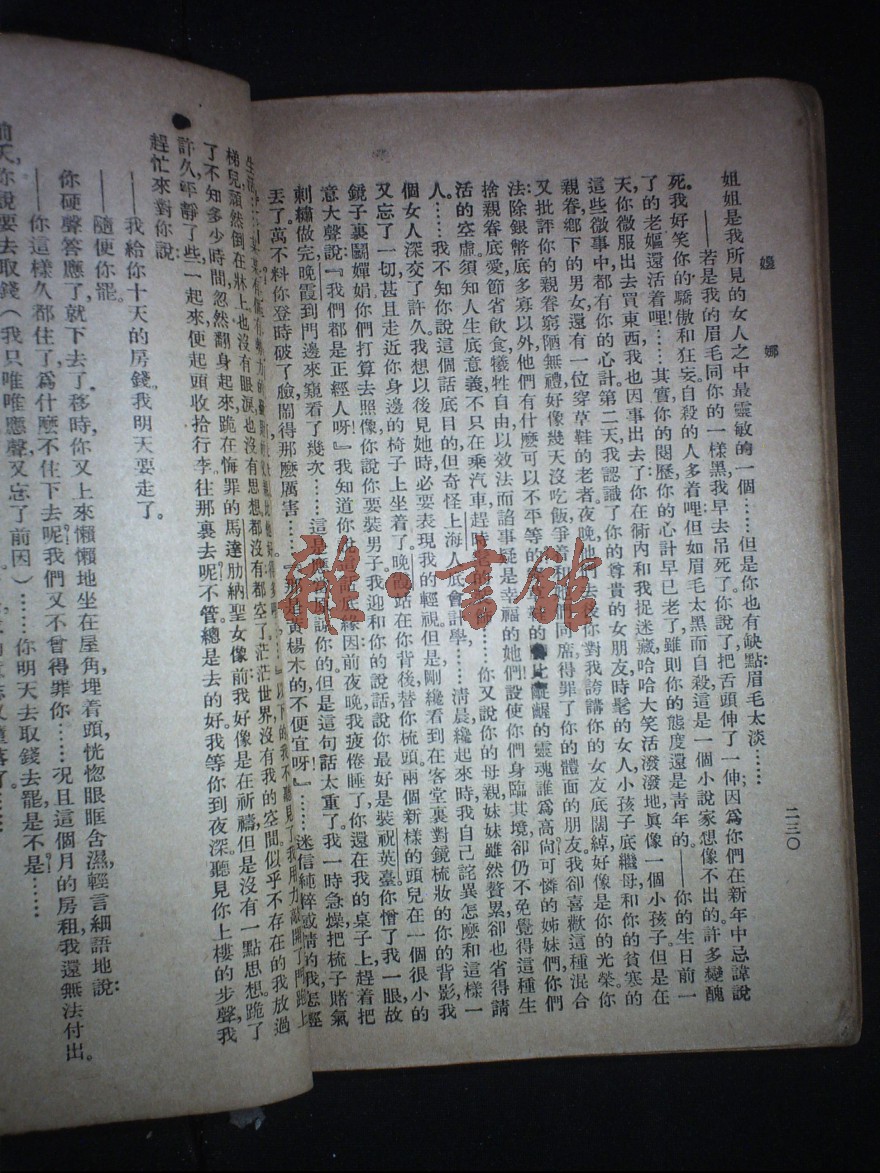 嫚娜
二三〇
姐姐是我所見的女人之中最靈敏的一個……但是你也有缺點：眉毛太淡……
——若是我的眉毛同你的一樣黑，我早去吊死了。你說了把舌頭伸了一伸，因爲你們在新年中忌諱說
死。我好笑你的驕傲和狂妄。自殺的人多着哩！但如眉毛太黑而自殺，這是一個小說家想像不出的。許多變醜
了的老嫗還活着哩！……其實你的閱歷，你的心計早已老了，雖則你的態度還是青年的——你的生日前一
天，你微服出去買東西，我也因事出去了。你在衖內和我捉迷藏，哈哈大笑，活潑潑地眞像一個小孩子。但是在
這些微事中都有你的心計。第二天，我認識了你的尊貴的女朋友，時髦的女人，小孩子底繼母和你的貧寒的
親眷，鄉下的男女，還有一位穿草鞋的老者。夜晚他們去後，你對我誇講你的女友底闊綽，好像是你的光榮。你
又批評你的親眷窮陋無禮，好像幾天沒吃飯，爭着和他們同席，得罪了你的體面的朋友。我卻喜歡這種混合
法。除銀幣底多寡以外，他們有什麽可以不平等的 齷齪的靈魂誰爲高尙？可憐的姊妹們，你們
捨親眷底愛，節省飲食，犧牲自由以效法而諂事疑是幸福的她們，設使你們身臨其境，卻仍不免覺得這種生
活的空虛。須知人生底意義，不只在乘汽車，趕時髦的 ……你又說你的母親妹妹雖然贅累，卻也省得請
人……我不知你說這個話底目的，但奇怪上海人底會計學……清晨纔起來時，我自己詫異怎麽和這樣一
個女人深交了許久。我想以後見她時必要表現我的輕視。但是剛纔看到在客堂裏對鏡梳妝的你的背影，我
又忘了一切，甚且走近你身邊的椅子上坐着了。晚霞站在你背後替你梳頭，兩個新樣的頭兒在一個很小的
鏡子裏鬭嬋娟。你們打算去照像，你說你要裝男子。我迎和你的說話，說你最好是裝祝英臺。你憎了我一眼，故
意大聲說：『我們都是正經人呀！』我知道你說這話底緣因：前夜晚我疲倦睡了，你還在我的桌子上趕着把
刺繡做完，晚霞到門邊來窺看了幾次……這是應 說你的。但是這句話太重了。我一時急燥，把梳子賭氣
丟了。萬不料你登時破了臉，鬧得那麽厲害……『那是黃楊木的，不便宜呀！』……迷信純粹感情的我，怎經
梯兒，頹然倒在牀上。也沒有眼淚，也沒有思想，都沒有，都空了。茫茫世界，沒有我的空間，似乎不存在的我放過
了不知多少時間。忽然翻身起來，跪在悔罪的馬達肋納聖女像前。我好像是在祈禱，但是沒有一點思想。跪了
許久，平靜了些，一起來便起頭收拾行李。往那裏去呢？不管，總是去的好。我等你到夜深，聽見你上樓的步聲，我
趕忙來對你說：
——我給你十天的房錢。我明天要走了。
——隨便你罷。
你硬聲答應了，就下去了。移時你又上來，懶懶地坐在屋角，埋着頭，恍惚眼眶含濕，輕言細語地說：
——你這樣久都住了，爲什麽不住下去呢？我們又不曾得罪你……況且這個月的房租，我還無法付出。
前天，你說要去取錢（我只唯唯應聲，又忘了前因）……你明天去取錢去罷，是不是……
雜·書館